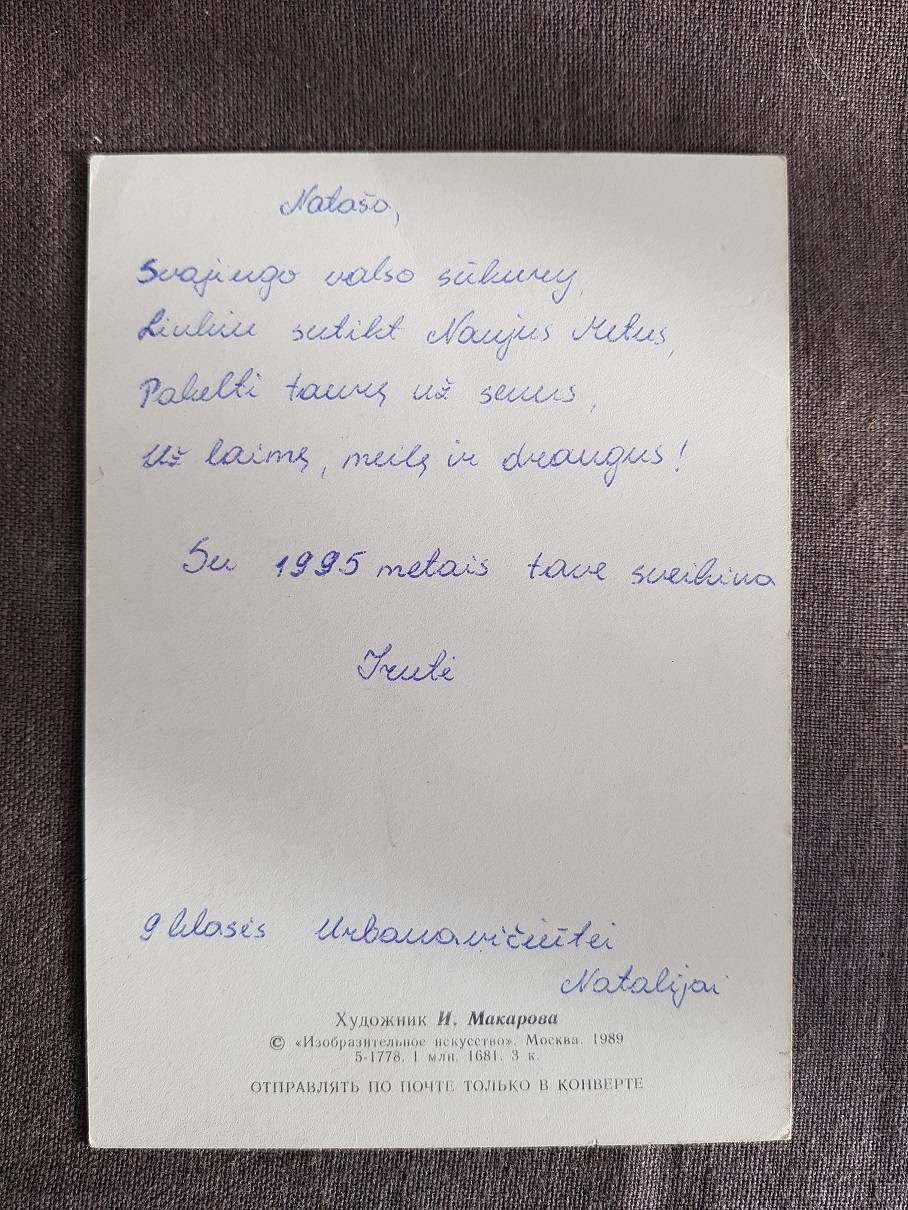 Natašo,
Svajingo valso sūkury,
Linkiu sutikt Naujus Metus,
Pakelti taurę už senus,
Už laimę, meilę ir draugus!
Su 1995 metais tave sveikina
Irutė
9 klasės Urbanavičiūtei
Natalijai
Художник И. Макарова
© «Изобразительное искусство». Москва. 1989
5-1778. 1 млн. 1681. 3 к.
ОТПРАВЛЯТЬ ПО ПОЧТЕ ТОЛЬКО В КОНВЕРТЕ